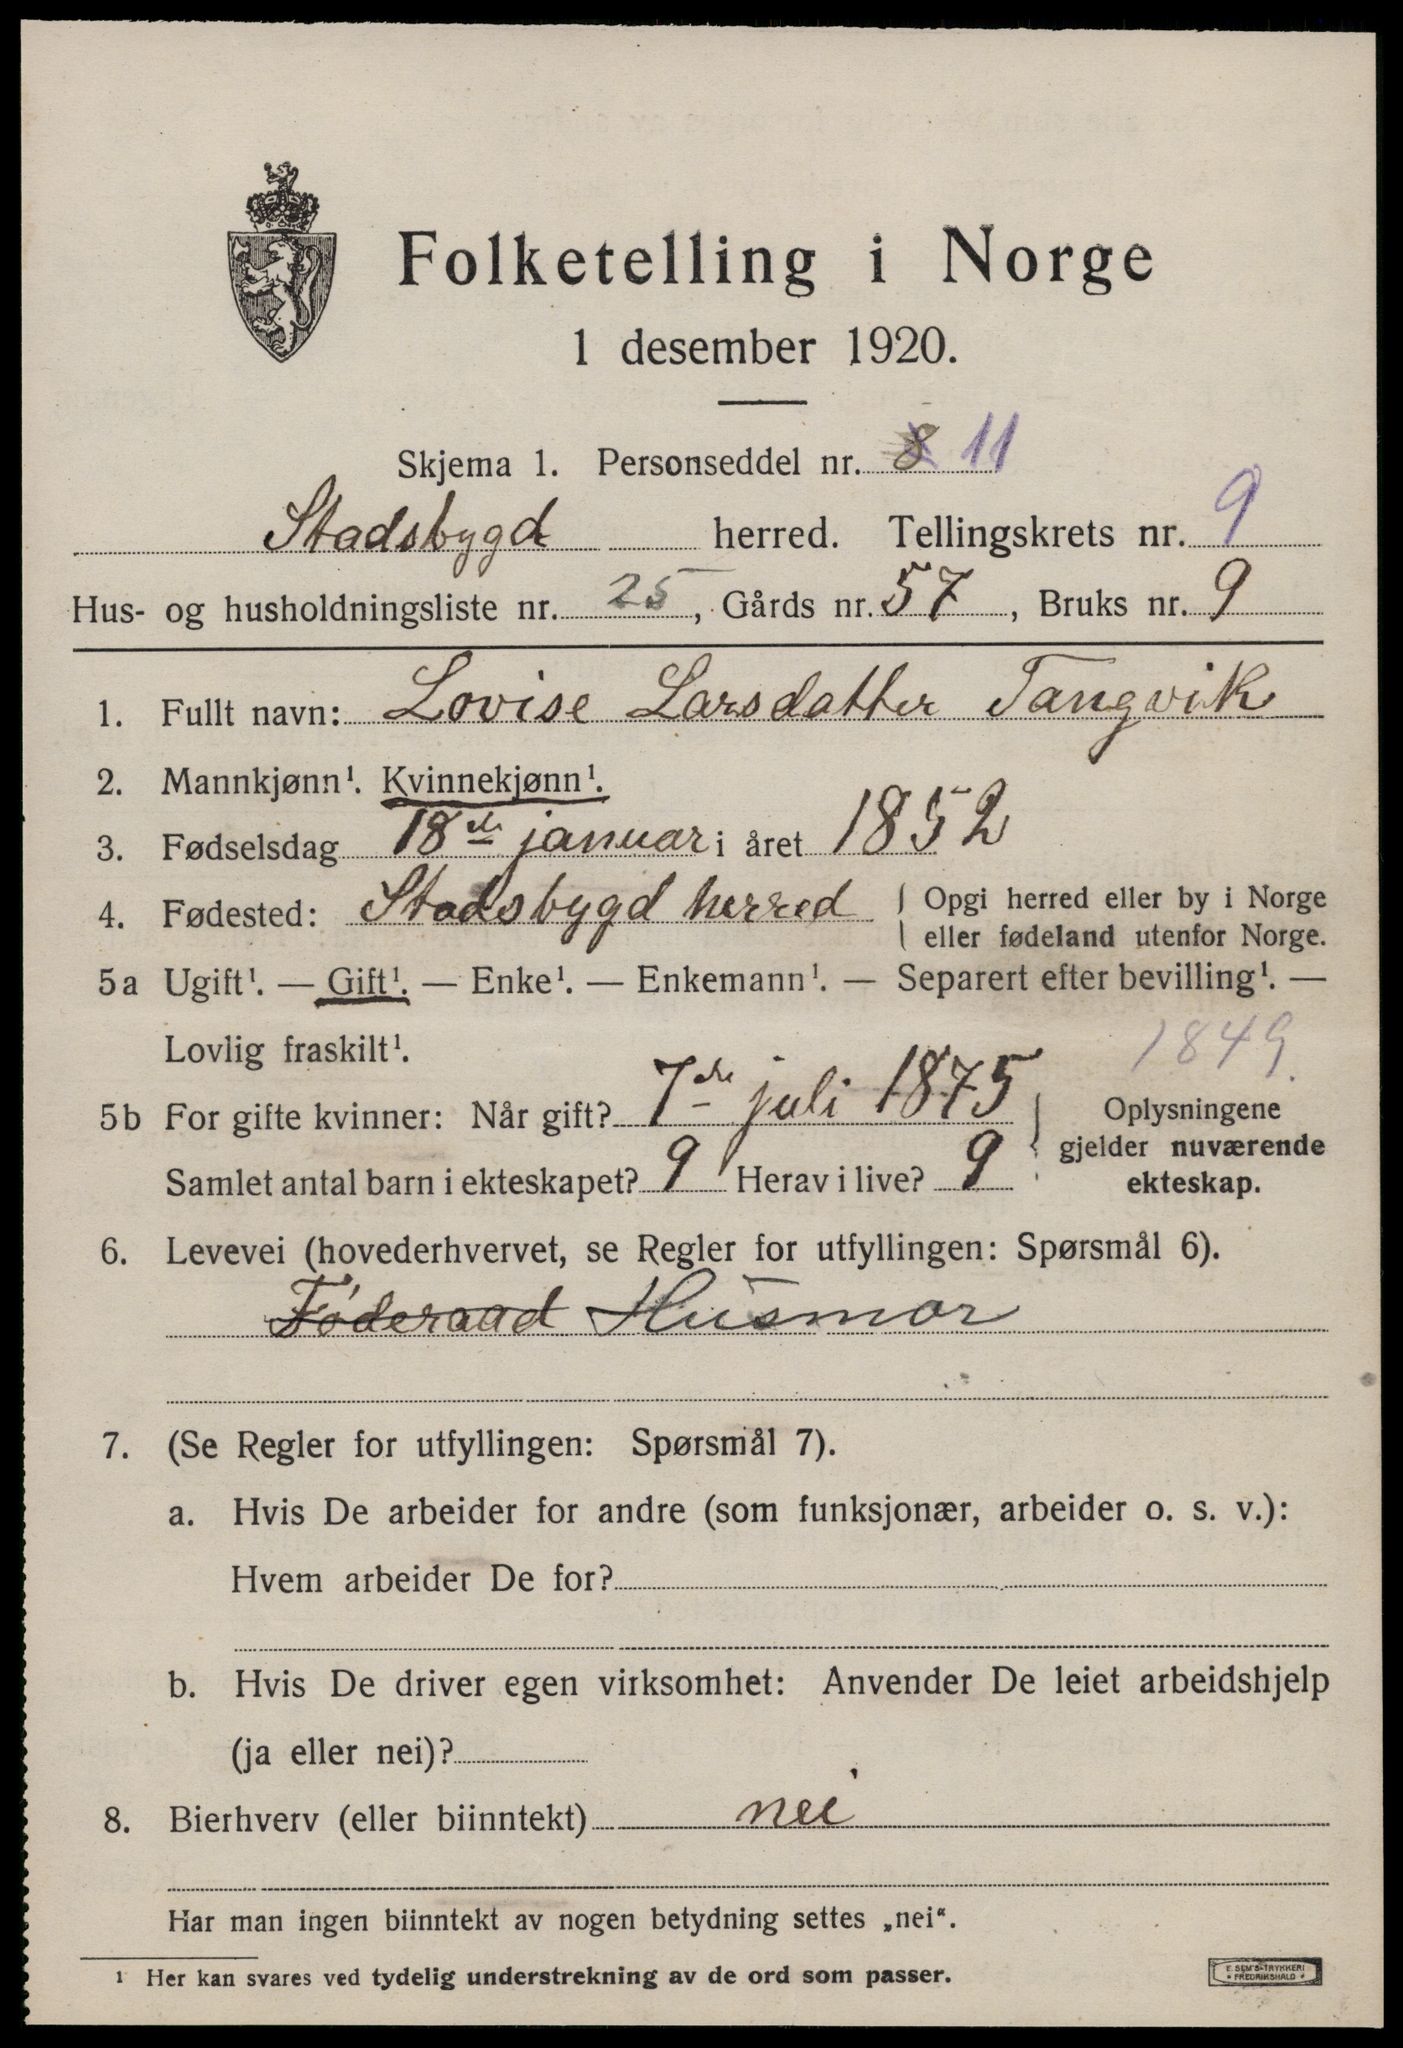 Folketelling i Norge
1 desember 1920.
Skjema 1. Personseddel nr. 8 11
Stadsbygd herred. Tellingskrets nr. 9
Hus- og husholdningsliste nr. 25, Gårds nr. 57, Bruks nr. 9
1. Fullt navn: Lovise Larsdatter Tangvik
2. Mannkjønn¹. Kvinnekjønn¹.
3. Fødselsdag 18de januar i året 1852
4. Fødested: Stadsbygd herred { Opgi herred eller by i Norge
eller fødeland utenfor Norge.
5a Ugift¹. — Gift¹. — Enke¹. — Enkemann¹. — Separert efter bevilling¹. —
Lovlig fraskilt¹.
1849.
5b For gifte kvinner: Når gift? 7de juli 1875
Samlet antal barn i ekteskapet? 9 Herav i live? 9
Oplysningene
gjelder nuværende
ekteskap.
6. Levevei (hovederhvervet, se Regler for utfyllingen: Spørsmål 6).
Føderaad Husmor
7. (Se Regler for utfyllingen: Spørsmål 7).
a. Hvis De arbeider for andre (som funksjonær, arbeider o. s. v.):
Hvem arbeider De for?
b. Hvis De driver egen virksomhet: Anvender De leiet arbeidshjelp
(ja eller nei)?
8. Bierhverv (eller biinntekt) nei
Har man ingen biinntekt av nogen betydning settes „nei“.
¹ Her kan svares ved tydelig understrekning av de ord som passer.
E. SEM'S TRYKKERI
FREDRIKSHALD